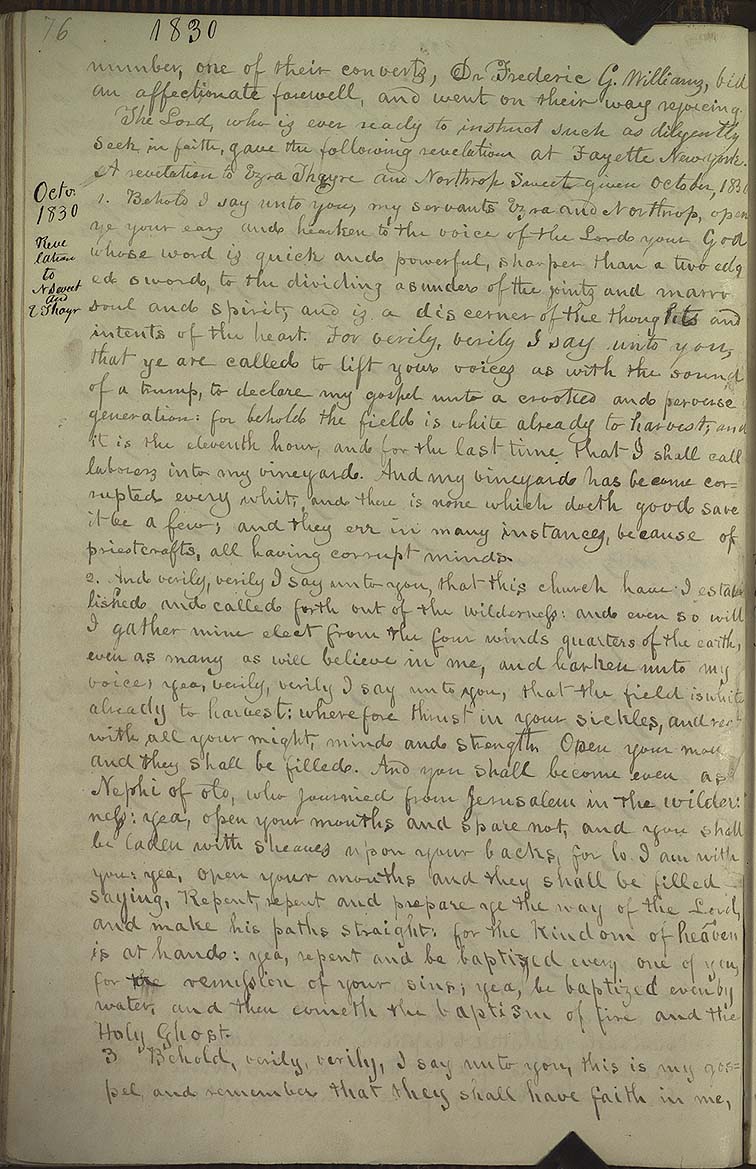 76
1830
number, one of their converts, Dr Frederic G. Williams, bid
an affectionate farewell, and went on their way rejoicing.
The Lord, who is ever ready to instruct such as diligently
seek in faith, gave the following revelation at Fayette New York.
A revelation to Ezra Thayre and Northrop Sweet given October, 1830
Octr.
1830
Reve
lation
to
N Sweet
and
E Thayr
1. Behold I say unto you, my servants Ezra and Northrop, open
ye your ears and hearken to the voice of the Lord your God
whose word is quick and powerful, sharper than a two edg
ed sword, to the dividing asunder of the joints and marro
soul and spirit; and is a discerner of the thoughts and
intents of the heart. For verily, verily I say unto you,
that ye are called to lift your voices as with the sound
of a trump, to declare my gospel unto a crooked and perverse
generation: for behold the field is white already to harvest; and
it is the eleventh hour, and for the last time that I shall call
laborers into my vineyard. And my vineyard has become cor=
rupted every whit; and there is none which doeth good save
it be a few; and they err in many instances, because of
priestcrafts, all having corrupt minds.
2. And verily, verily I say unto you, that this church have I estab
lished and called forth out of the wilderness: and even so will
I gather mine elect from the four winds quarters of the earth,
even as many as will believe in me, and harken unto my
voice; yea, verily, verily I say unto you, that the field is white
already to harvest: wherefore thrust in your sickles, and rea
with all your might, mind and strength Open your mou
and they shall be filled. And you shall become even as
Nephi of old, who journied from Jerusalem in the wilder=
ness: yea, open your mouths and spare not, and you shall
be laden with sheaves upon your backs, for lo I am with
you: yea, open your mouths and they shall be filled
saying, Repent, repent and prepare ye the way of the Lord,
and make his paths straight: for the Kindom of heaven
is at hand: yea, repent and be baptized every one of you,
for the remission of your sins; yea, be baptized even by
water, and then cometh the baptism of fire and the
Holy Ghost.
3 Behold, verily, verily, I say unto you, this is my gos=
pel, and remember that they shall have faith in me,